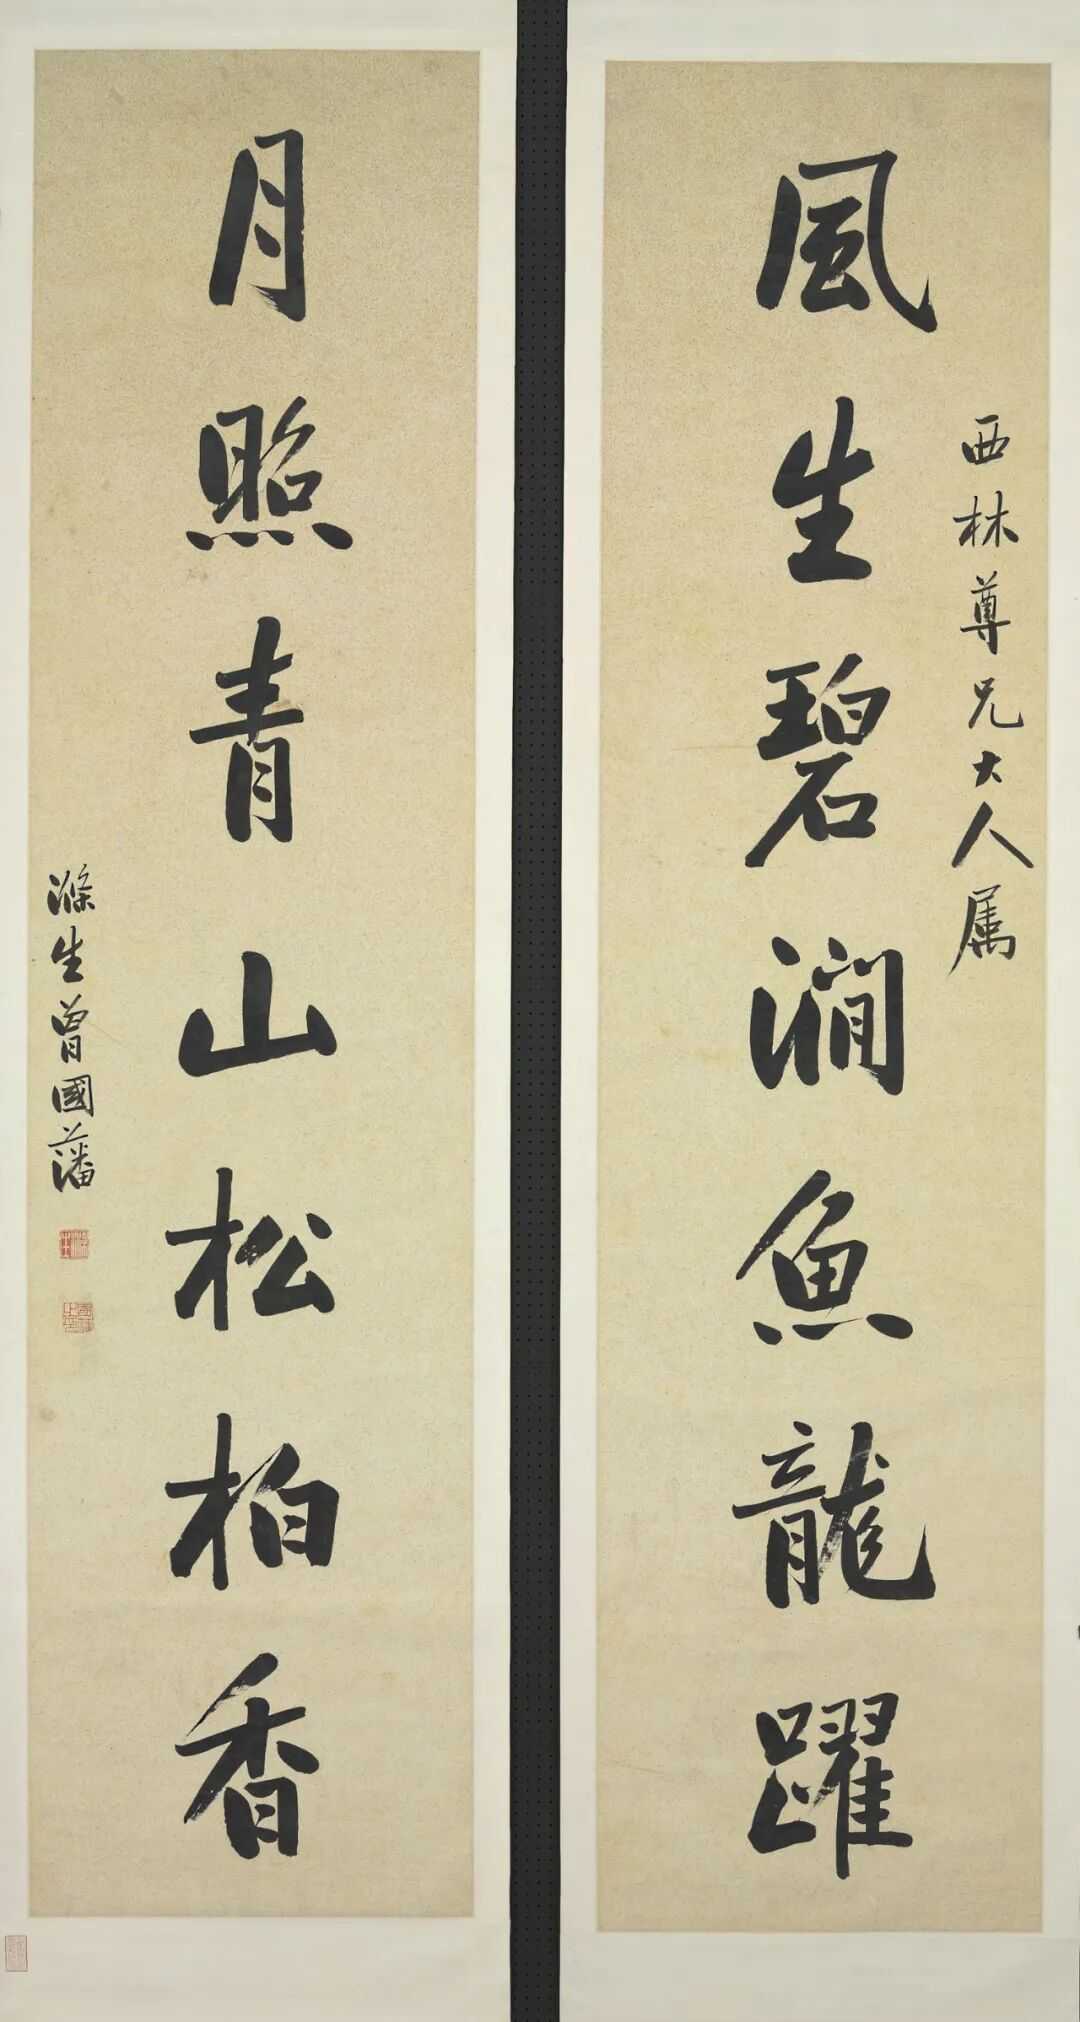 西林尊兄大人属
風生碧澗魚龍躍
月照青山松柏香
滌生曾國藩